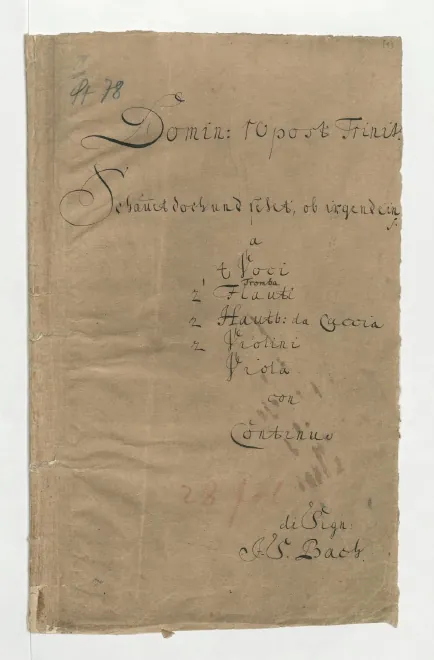 St 78
Domin: 10 post Trinit.
Schauet doch und sehet, ob irgend ein
a
4 Voci
Tromba
2 Flauti
2 Hautb: da Caccia
2 Violini
Viola
con
Continuo
di Sign:
J. S. Bach.